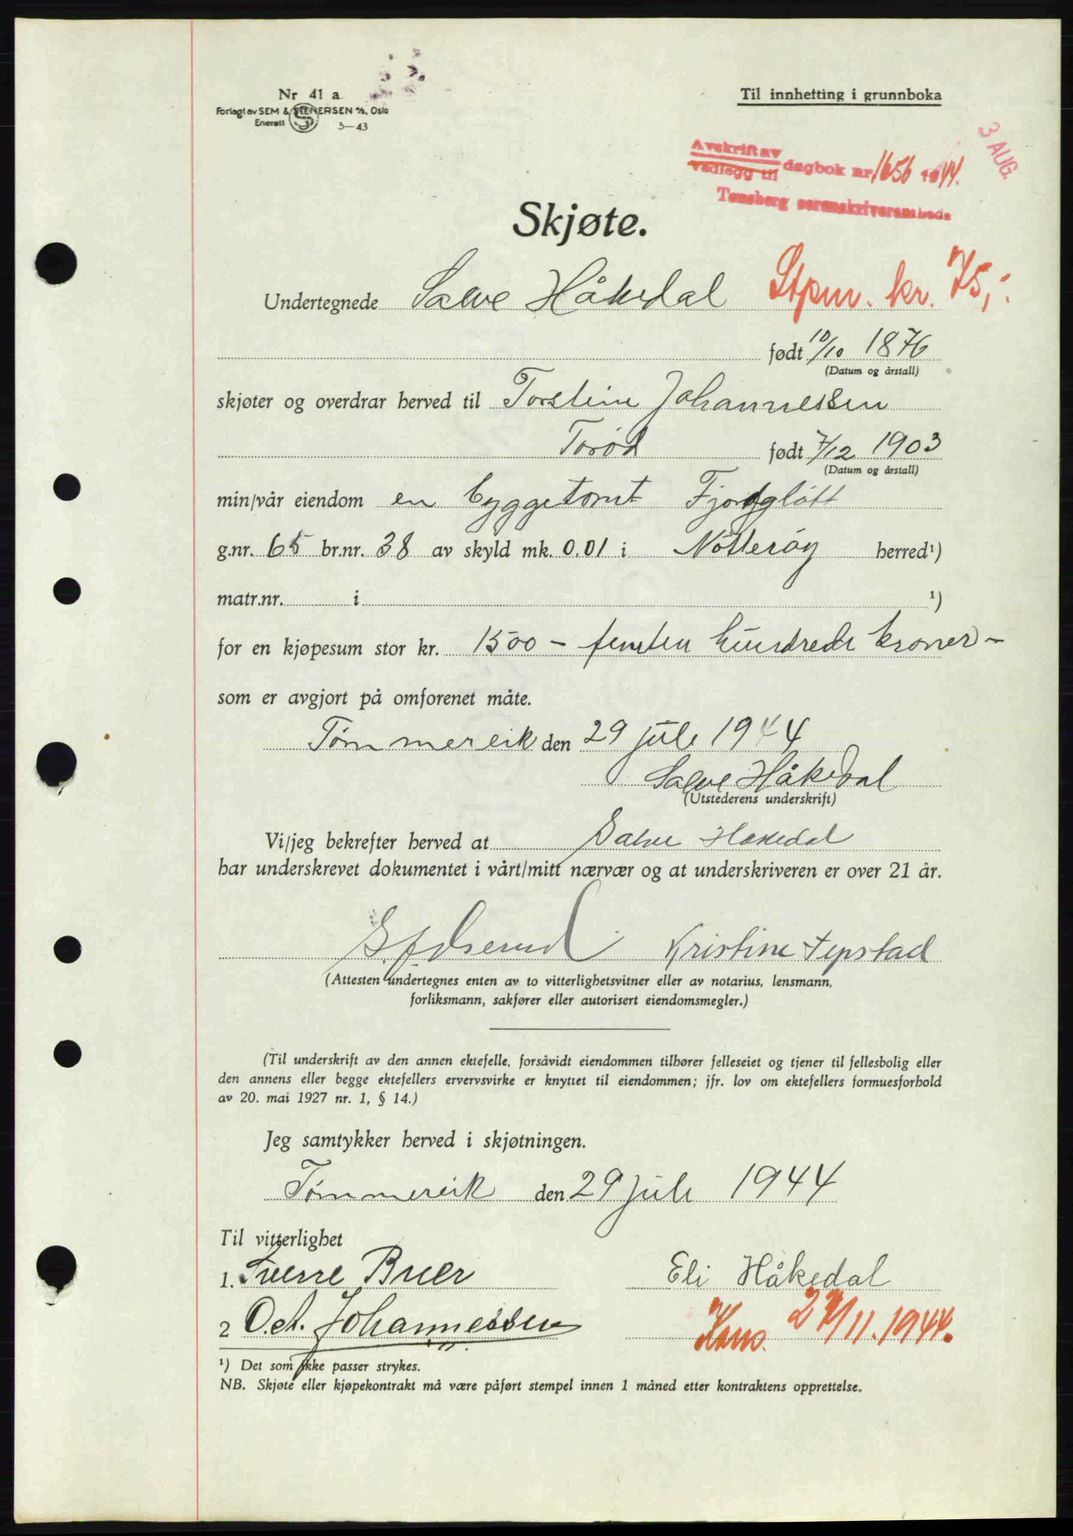 Nr 41 a.
Forlagt av SEM & STENERSEN A/S, Oslo
Enerett 5-43
Til innhefting i grunnboka
3 AUG.
Avskrift av
vedlegg til dagbok nr 1656 1944.
Tønsberg sorenskriverembede
Skjøte.
Undertegnede Salve Håkedal Stpm. kr. 75,-
født 10/10 1876
(Datum og årstall)
skjøter og overdrar herved til Torstein Johannessen
Torød født 7/12 1903
(Datum og årstall)
min/vår eiendom en byggetomt Fjordgløtt
g.nr. 65 br.nr. 38 av skyld mk. 0.01 i Nøtterøy herred¹)
matr.nr. i ¹)
for en kjøpesum stor kr. 1500 - femten hundrede kroner -
som er avgjort på omforenet måte.
Tømmereik den 29 juli 1944
Salve Håkedal
(Utstederens underskrift)
Vi/jeg bekrefter herved at Salve Håkedal
har underskrevet dokumentet i vårt/mitt nærvær og at underskriveren er over 21 år.
Kristine
(Attesten undertegnes enten av to vitterlighetsvitner eller av notarius, lensmann,
forliksmann, sakfører eller autorisert eiendomsmegler.)
(Til underskrift av den annen ektefelle, forsåvidt eiendommen tilhører felleseiet og tjener til fellesbolig eller
den annens eller begge ektefellers ervervsvirke er knyttet til eiendommen; jfr. lov om ektefellers formuesforhold
av 20. mai 1927 nr. 1, § 14.)
Jeg samtykker herved i skjøtningen.
Tømmereik den 29 juli 1944
Til vitterlighet
1. Sverre Buer Eli Håkedal
2 Oct. Johannessen 27/11. 1944.
¹) Det som ikke passer strykes.
NB. Skjøte eller kjøpekontrakt må være påført stempel innen 1 måned etter kontraktens opprettelse.